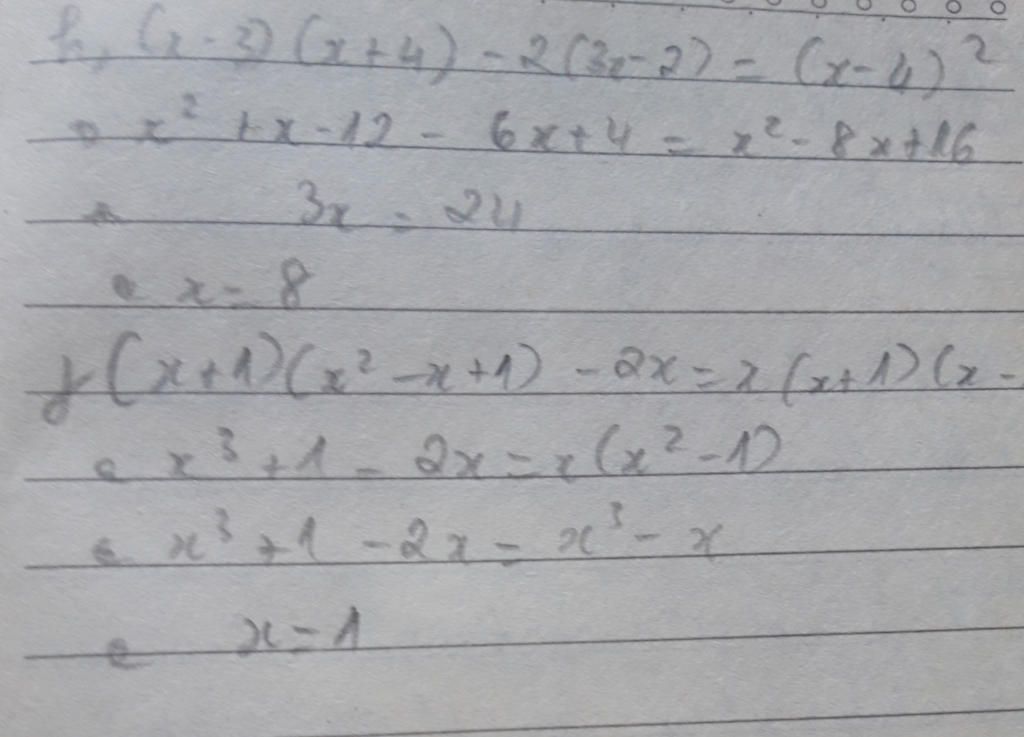 h, (x-3)(x+4) - 2(3x-2) = (x-4)²
x² + x - 12 - 6x + 4 = x² - 8x + 16
3x = 24
x = 8
(x+1)(x² - x + 1) - 2x = x(x+1)(x -
x³ + 1 - 2x = x(x² - 1)
x³ + 1 - 2x = x³ - x
x = 1